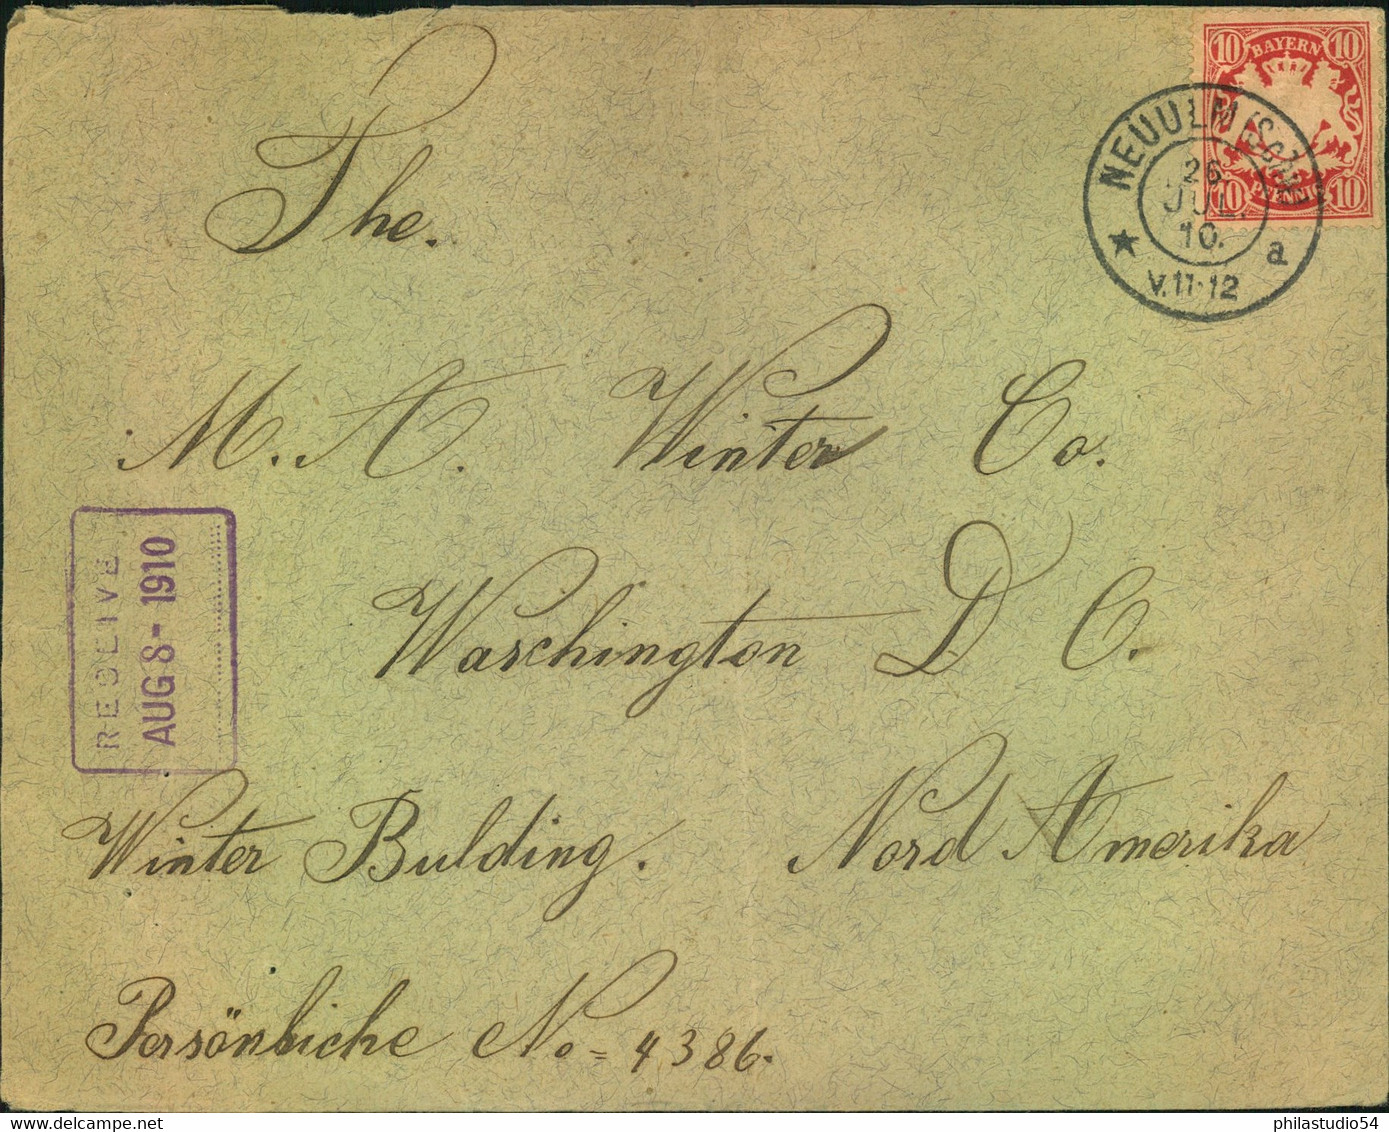 10 BAYERN 10
10 PFENNIG 10
NEUULM (Schw)
26.
JUL.
10.
a
V.11-12
The.
M. A. Winter Co.
Waschington D C.
RECEIVE
AUG 8 - 1910
Winter Bulding. Nord Amerika
Persönliche No = 4386.
philastudio54